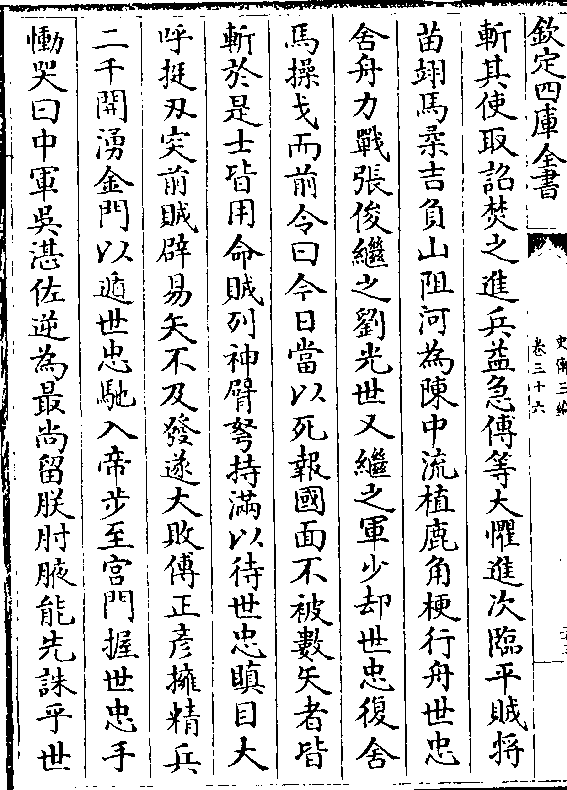 欽定四庫全書
史傳三編
卷三十六
斬其使取詔焚之進兵益急傅等大懼進次臨平賊將
苗翊馬柔吉負山阻河為陳中流植鹿角梗行舟世忠
舍舟力戰張俊繼之劉光世又繼之軍少却世忠復舍
馬操戈而前令曰今日當以死報國面不被數矢者皆
斬於是士皆用命賊列神臂弩持滿以待世忠瞋目大
呼挺刃突前賊辟易矢不及發遂大敗傅正彥擁精兵
二千開湧金門以遁世忠馳入帝步至宮門握世忠手
慟哭曰中軍吳湛佐逆為最尚留朕肘腋能先誅乎世